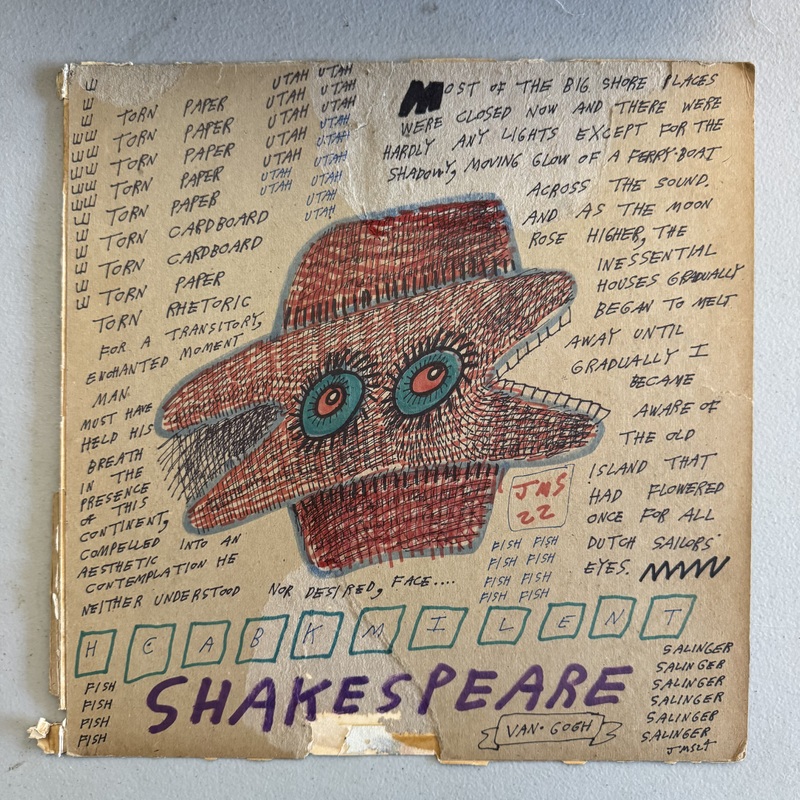 TORN PAPER
TORN PAPER
TORN PAPER
TORN PAPER
TORN PAPER
TORN CARDBOARD
TORN CARDBOARD
TORN PAPER
TORN RHETORIC
FOR A TRANSITORY,
ENCHANTED MOMENT
MAN
MUST HAVE
HELD HIS
BREATH
IN THE
PRESENCE
OF THIS
CONTINENT,
COMPELLED INTO AN
AESTHETIC
CONTEMPLATION HE
NEITHER UNDERSTOOD NOR DESIRED, FACE....
UTAH UTAH
UTAH UTAH
UTAH UTAH
UTAH UTAH
UTAH UTAH
UTAH UTAH
UTAH UTAH
UTAH UTAH
UTAH
UTAH
MOST OF THE BIG SHORE PLACES
WERE CLOSED NOW AND THERE WERE
HARDLY ANY LIGHTS EXCEPT FOR THE
SHADOWY, MOVING GLOW OF A FERRY-BOAT
ACROSS THE SOUND.
AND AS THE MOON
ROSE HIGHER, THE
INESSENTIAL
HOUSES GRADUALLY
BEGAN TO MELT
AWAY UNTIL
GRADUALLY I
BECAME
AWARE OF
THE OLD
ISLAND THAT
HAD FLOWERED
ONCE FOR ALL
DUTCH SAILORS'
EYES.
JMS
22
FISH FISH
FISH FISH
FISH FISH
FISH FISH
H C A B K M I L E N T
FISH
FISH
FISH
FISH
SHAKESPEARE
VAN·GOGH
SALINGER
SALINGER
SALINGER
SALINGER
SALINGER
SALINGER